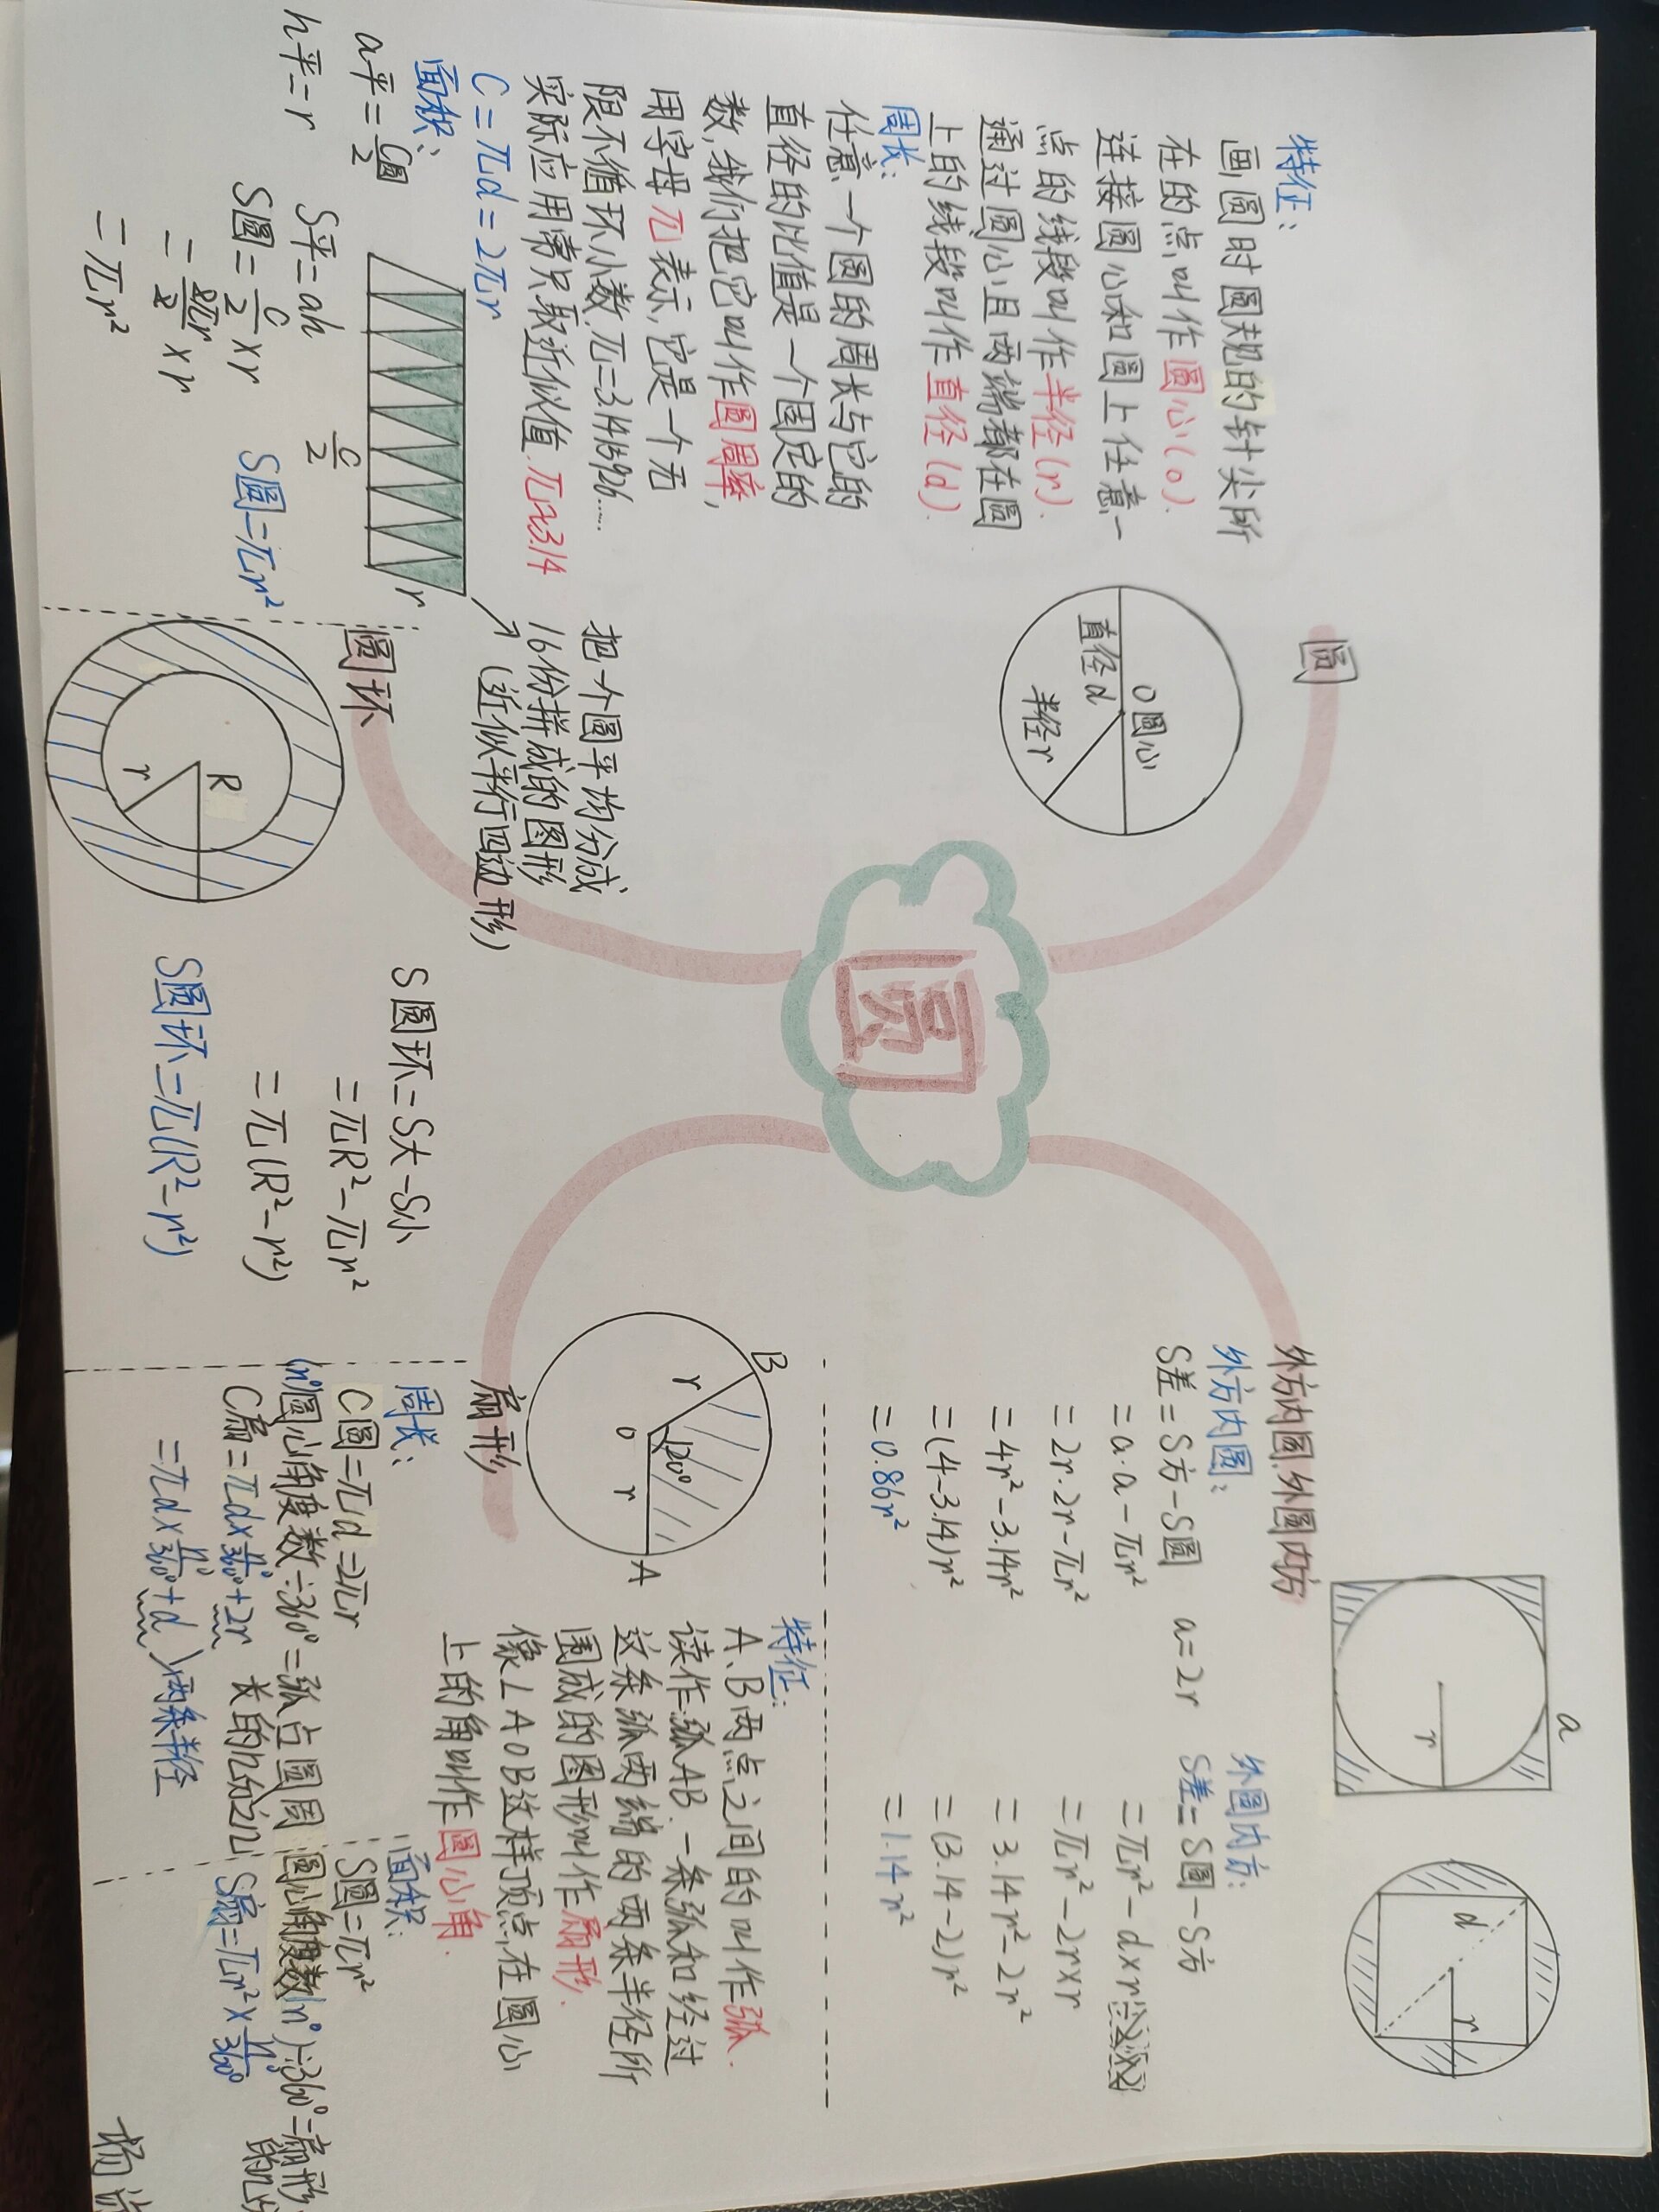 圆
圆
特征：
画圆时圆规的针尖所
在的点叫作圆心(o).
连接圆心和圆上任意一
点的线段叫作半径(r).
通过圆心且两端都在圆
上的线段叫作直径(d).
O圆心
直径d
半径r
周长：
任意一个圆的周长与它的
直径的比值是一个固定的
数，我们把它叫作圆周率，
用字母π表示，它是一个无
限不循环小数，π=3.1415926……
实际应用常只取近似值，π≈3.14
C=πd=2πr
面积：
a平=C圆/2
h平=r
r
C/2
把个圆平均分成
16份拼成的图形
(近似平行四边形)
S平=ah
S圆=C/2×r
=2πr/2×r
=πr²
S圆=πr²
圆环
R
r
S圆环=S大-S小
=πR²-πr²
=π(R²-r²)
S圆环=π(R²-r²)
外方内圆，外圆内方
a
r
d
r
外方内圆：
S差=S方-S圆 a=2r
=a·a-πr²
=2r·2r-πr²
=4r²-3.14r²
=(4-3.14)r²
=0.86r²
外圆内方：
S差=S圆-S方
=πr²-d×r
=πr²-2r×r
=3.14r²-2r²
=(3.14-2)r²
=1.14r²
扇形
B
r
120°
O
r
A
特征：
A、B两点之间的叫作弧.
读作：弧AB.一条弧和经过
这条弧两端的两条半径所
围成的图形叫作扇形.
像∠AOB这样顶点在圆心
上的角叫作圆心角.
周长：
C圆=πd=2πr
(n°)圆心角度数÷360°=弧占圆周
长的几分之几
C扇=πd×n°/360°+2r
=πd×n°/360°+d 两条半径
面积：
S圆=πr²
圆心角度数(n°)÷360°=扇形
S扇=πr²×n°/360°
杨